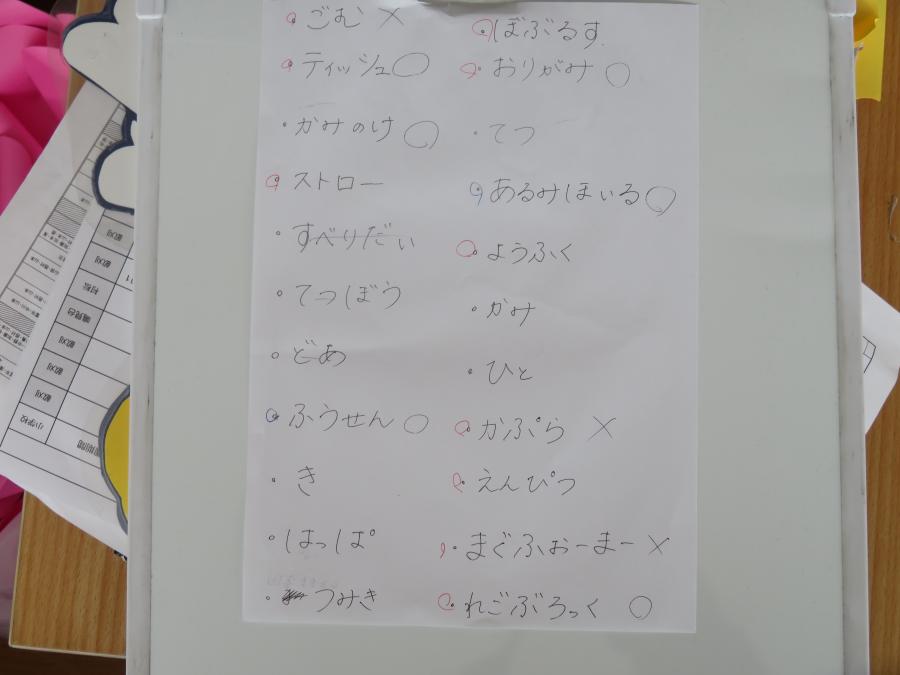 ごむ ×
ティッシュ ○
かみのけ ○
ストロー
すべりだい
てつぼう
どあ
ふうせん ○
き
はっぱ
つみき
ぼぶるす
おりがみ ○
てつ
あるみほいる ○
ようふく
かみ
ひと
かぷら ×
えんぴつ
まぐふぉーまー ×
れごぶろっく ○